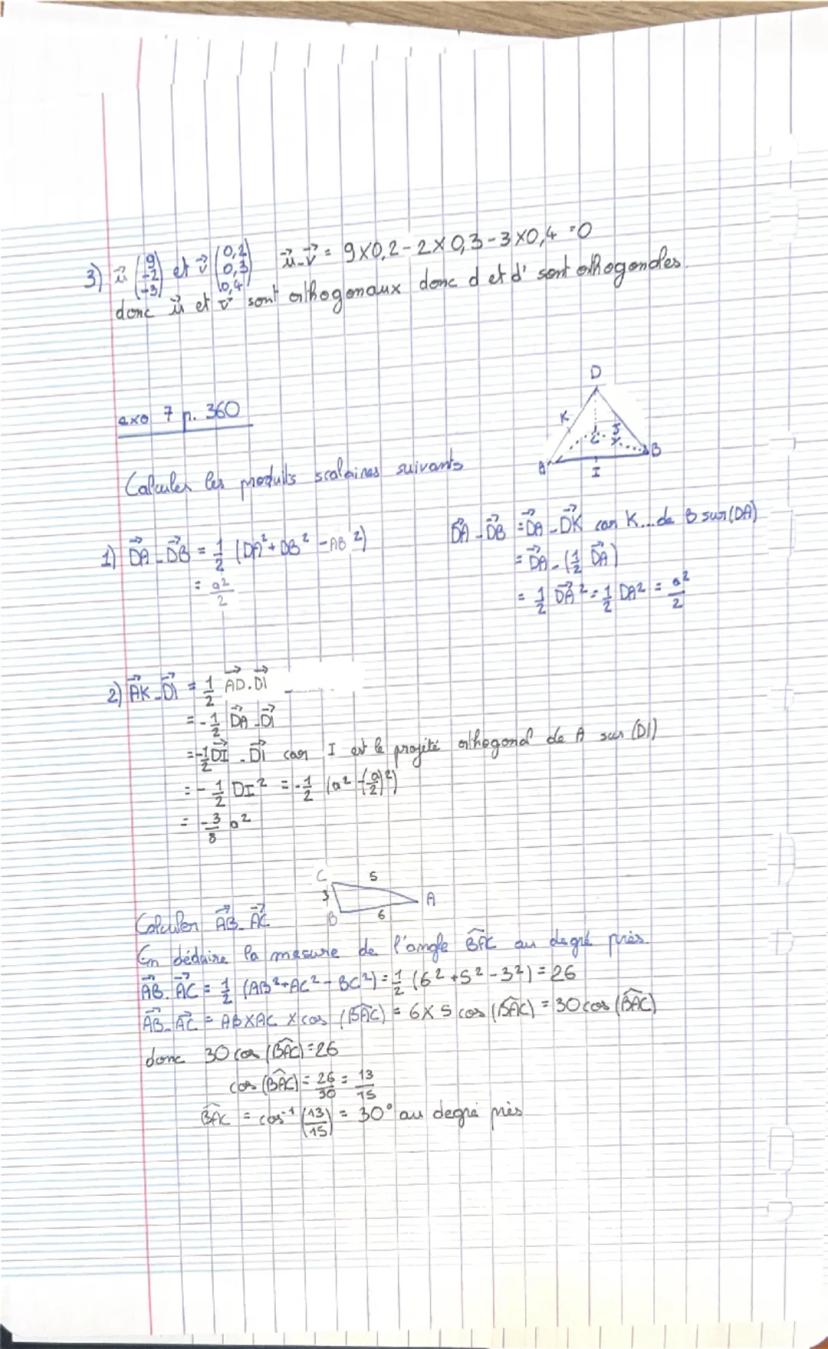 3) u⃗ (9 -2 -3) et v⃗ (0,2 0,3 0,4) u⃗.v⃗ = 9×0,2 - 2×0,3 - 3×0,4 = 0
donc u⃗ et v⃗ sont orthogonaux donc d et d' sont orthogonales.
exo 7 p. 360
D
K
C J
A B
I
Calculer les produits scalaires suivants
1) DA⃗.DB⃗ = 1/2 (DA² + DB² - AB²)
= a²/2
DA⃗.DB⃗ = DA⃗.DK⃗ car K...de B sur (DA)
= DA⃗.(1/2 DA⃗)
= 1/2 DA⃗² = 1/2 DA² = a²/2
2) AK⃗.DI⃗ = 1/2 AD⃗.DI⃗
= -1/2 DA⃗.DI⃗
= -1/2 DI⃗.DI⃗ car I est le projeté orthogonal de A sur (DI)
= -1/2 DI² = -1/2 (a² - (a/2)²)
= -3/8 a²
C 5
3 A
B 6
Calculer AB⃗.AC⃗
En déduire la mesure de l'angle BAC̑ au degré près.
AB⃗.AC⃗ = 1/2 (AB² + AC² - BC²) = 1/2 (6² + 5² - 3²) = 26
AB⃗.AC⃗ = AB×AC×cos (BAC̑) = 6×5 cos (BAC̑) = 30 cos (BAC̑)
donc 30 cos (BAC̑) = 26
cos (BAC̑) = 26/30 = 13/15
BAC̑ = cos⁻¹ (13/15) = 30° au degré près